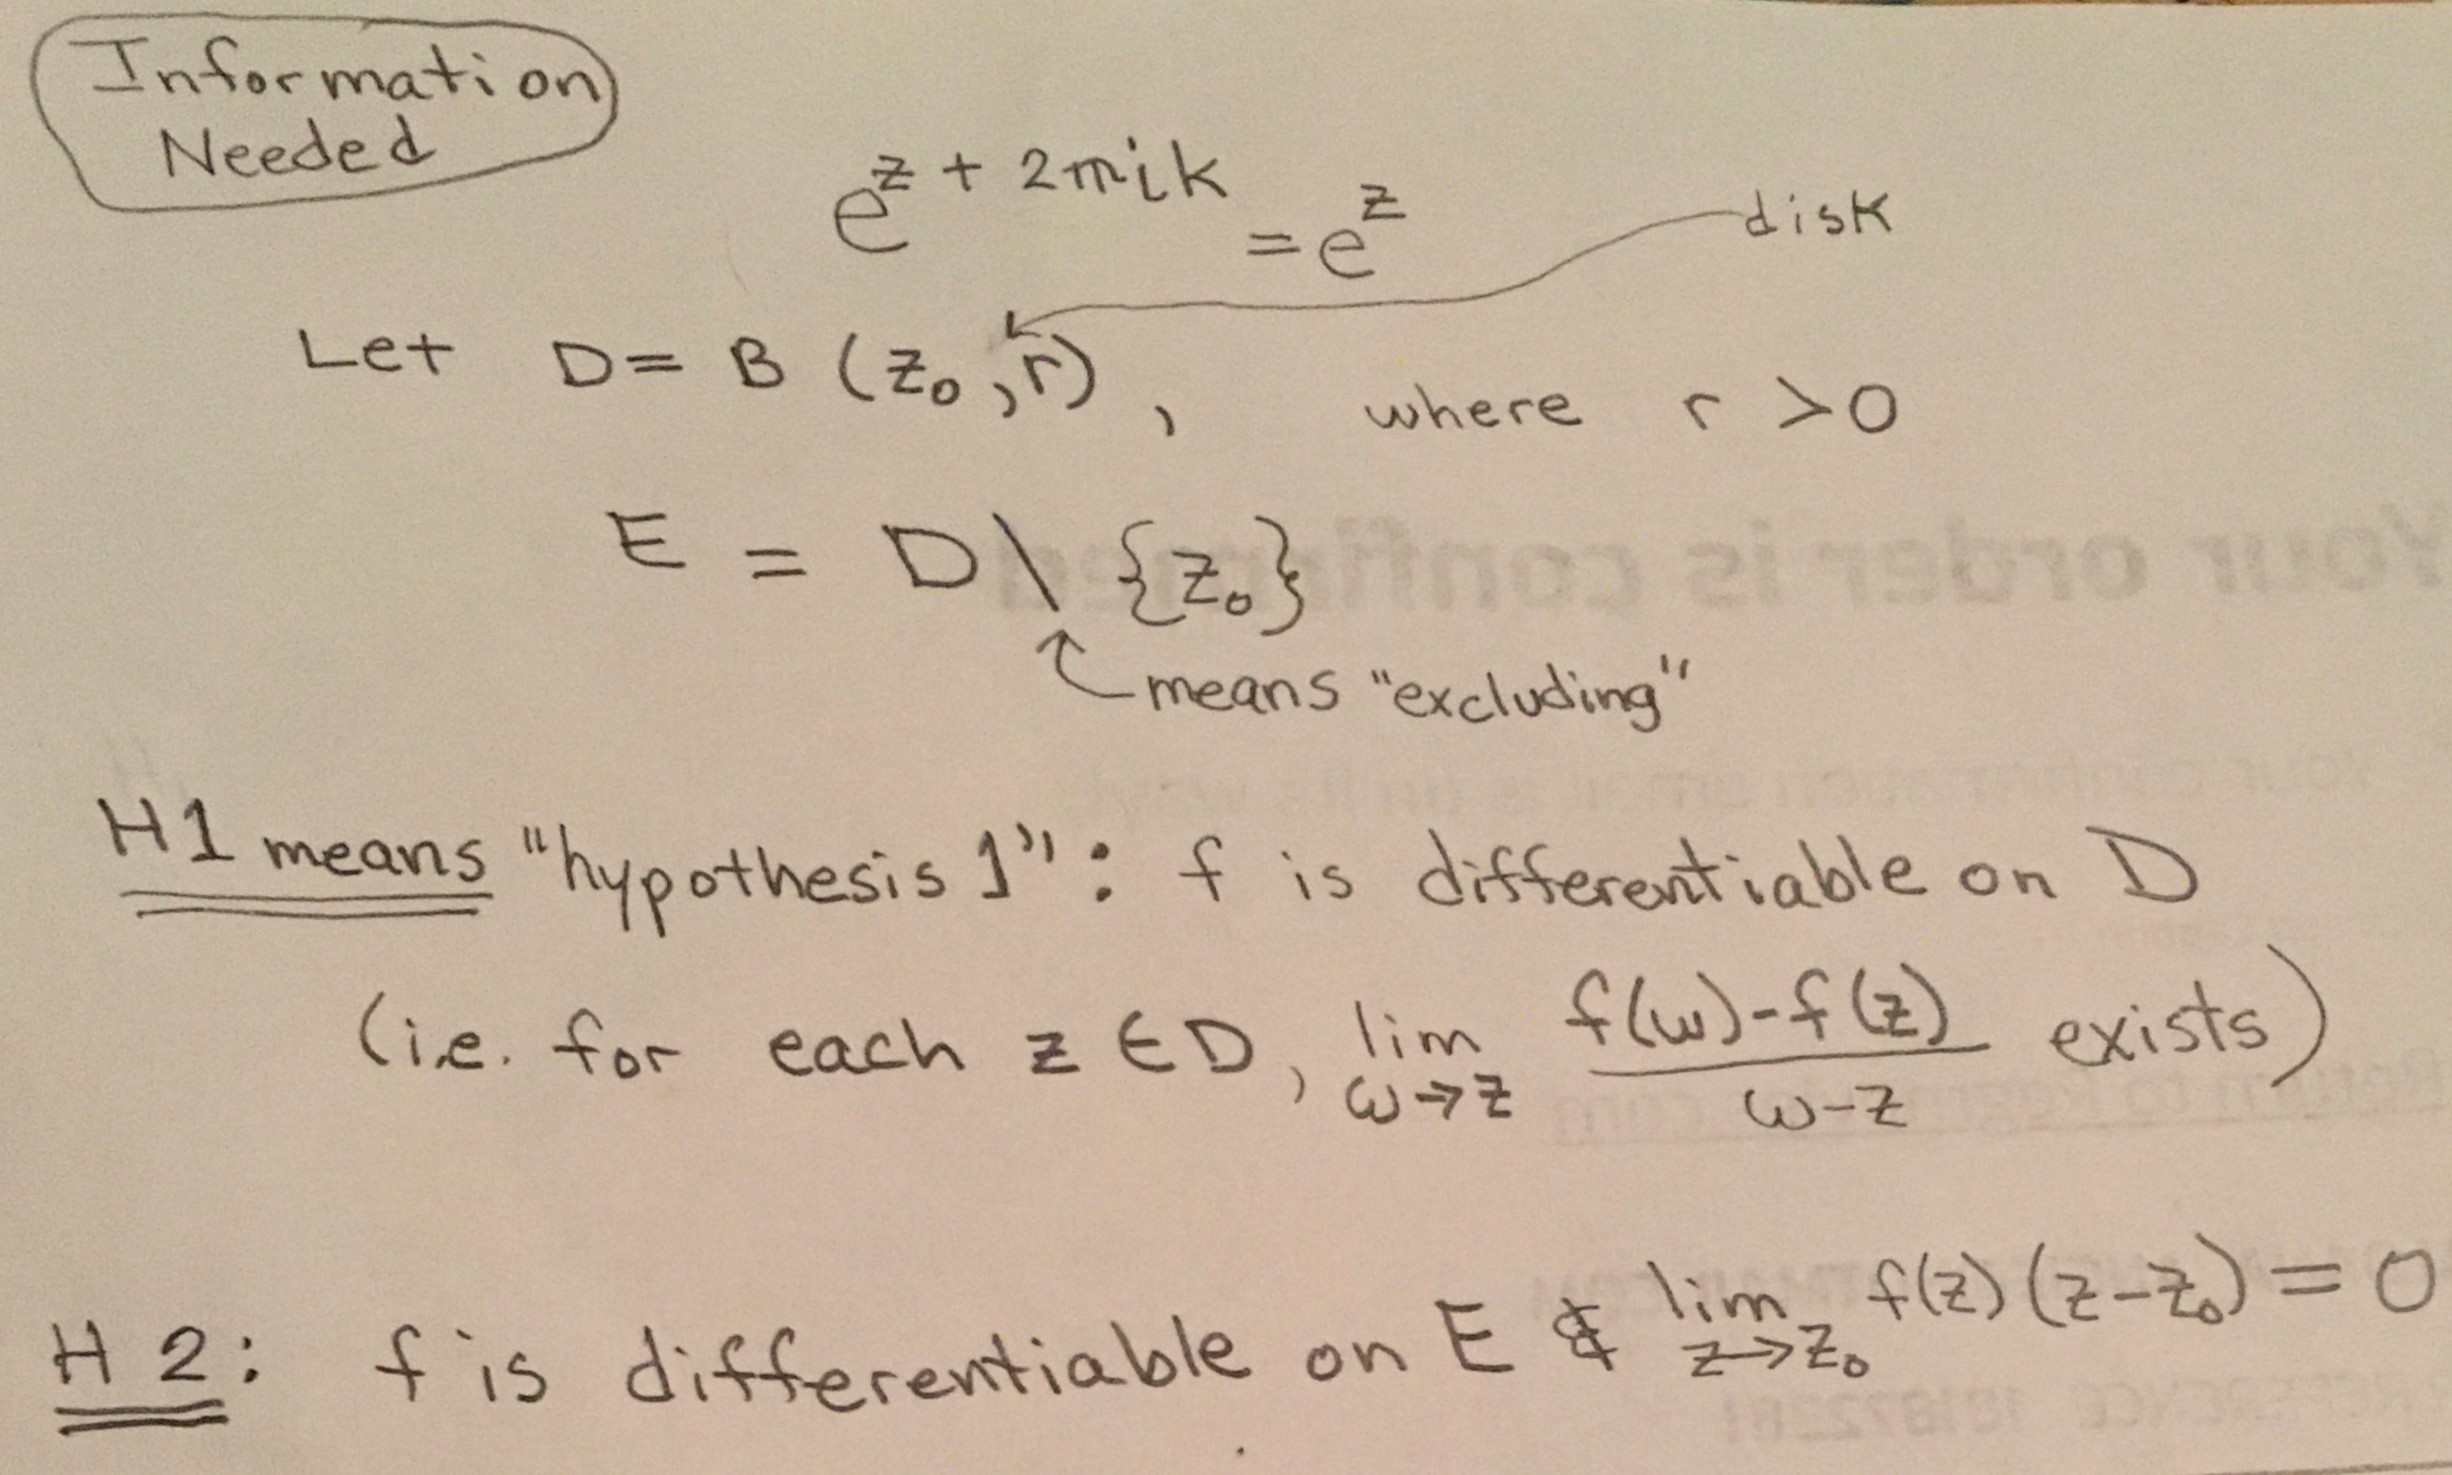 Information
Needed
e^{z + 2πik} = e^z
disk
Let D = B (z₀, r), where r > 0
E = D \ {z₀}
means "excluding"
H1 means "hypothesis 1": f is differentiable on D
(i.e. for each z ∈ D, lim_{ω→z} \frac{f(ω)-f(z)}{ω-z} exists)
H2: f is differentiable on E & lim_{z→z₀} f(z)(z-z₀) = 0
Your order is confirmed